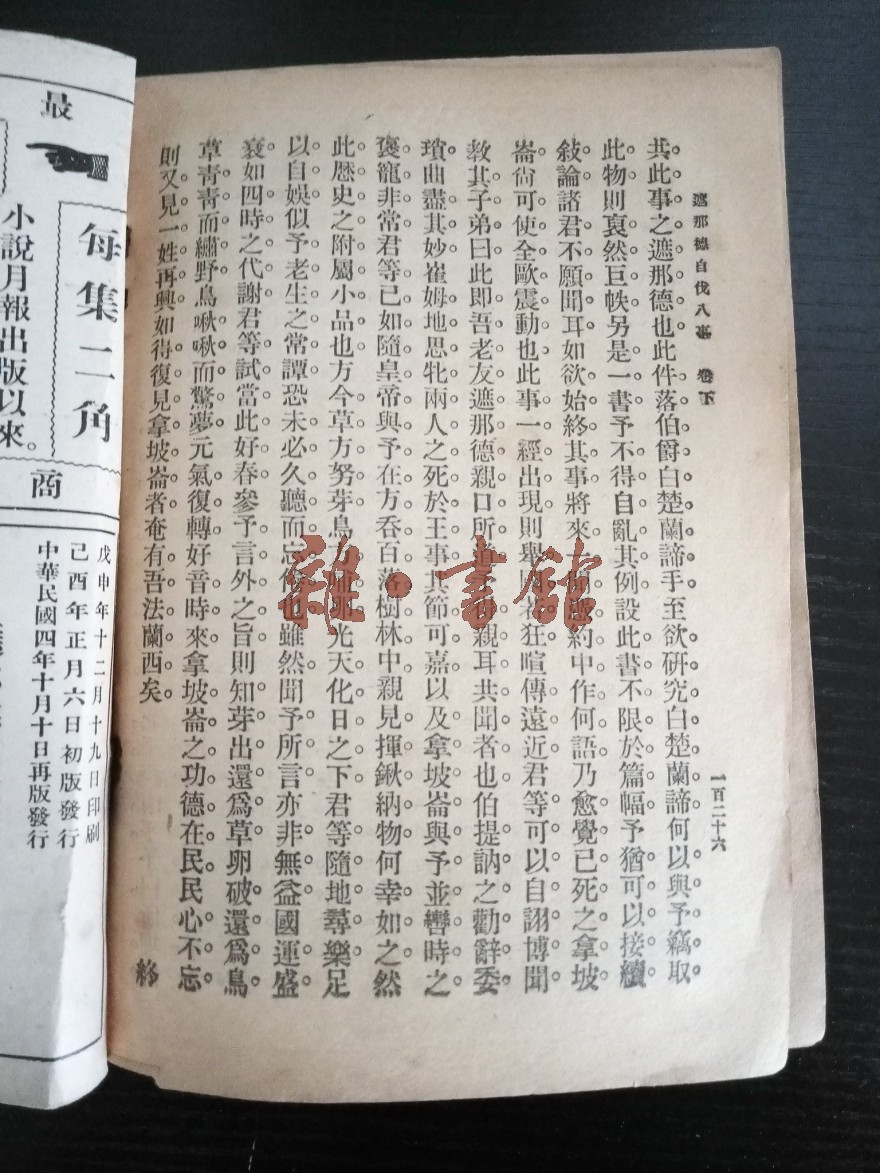 遮那德自伐八事 卷下
一百二十六
共此事之遮那德也此件落伯爵白楚蘭諦手至欲研究白楚蘭諦何以與予竊取
此物則裒然巨帙另是一書予不得自亂其例設此書不限於篇幅予猶可以接續
敍論諸君不願聞耳如欲始終其事將來一
約中作何語乃愈覺已死之拿坡
崙尙可使全歐震動也此事一經出現則舉國若狂喧傳遠近君等可以自詡博聞
敎其子弟曰此卽吾老友遮那德親口所
親耳共聞者也伯提訥之勸辭委
瑣曲盡其妙崔姆地思牝兩人之死於王事其節可嘉以及拿坡崙與予並轡時之
褒寵非常君等已如隨皇帝與予在方呑百落樹林中親見揮鍬納物何幸如之然
此歷史之附屬小品也方今草方努芽鳥方
光天化日之下君等隨地尋樂足
以自娛似予老生之常譚恐未必久聽而忘倦也雖然聞予所言亦非無益國運盛
衰如四時之代謝君等試當此好春參予言外之旨則知芽出還爲草卵破還爲鳥
草靑靑而繡野鳥啾啾而驚夢元氣復轉好音時來拿坡崙之功德在民民心不忘
則又見一姓再興如得復見拿坡崙者奄有吾法蘭西矣
終
雜·書館
最
每集二角
小說月報出版以來。
商
戊申年十二月十九日印刷
己酉年正月六日初版發行
中華民國四年十月十日再版發行